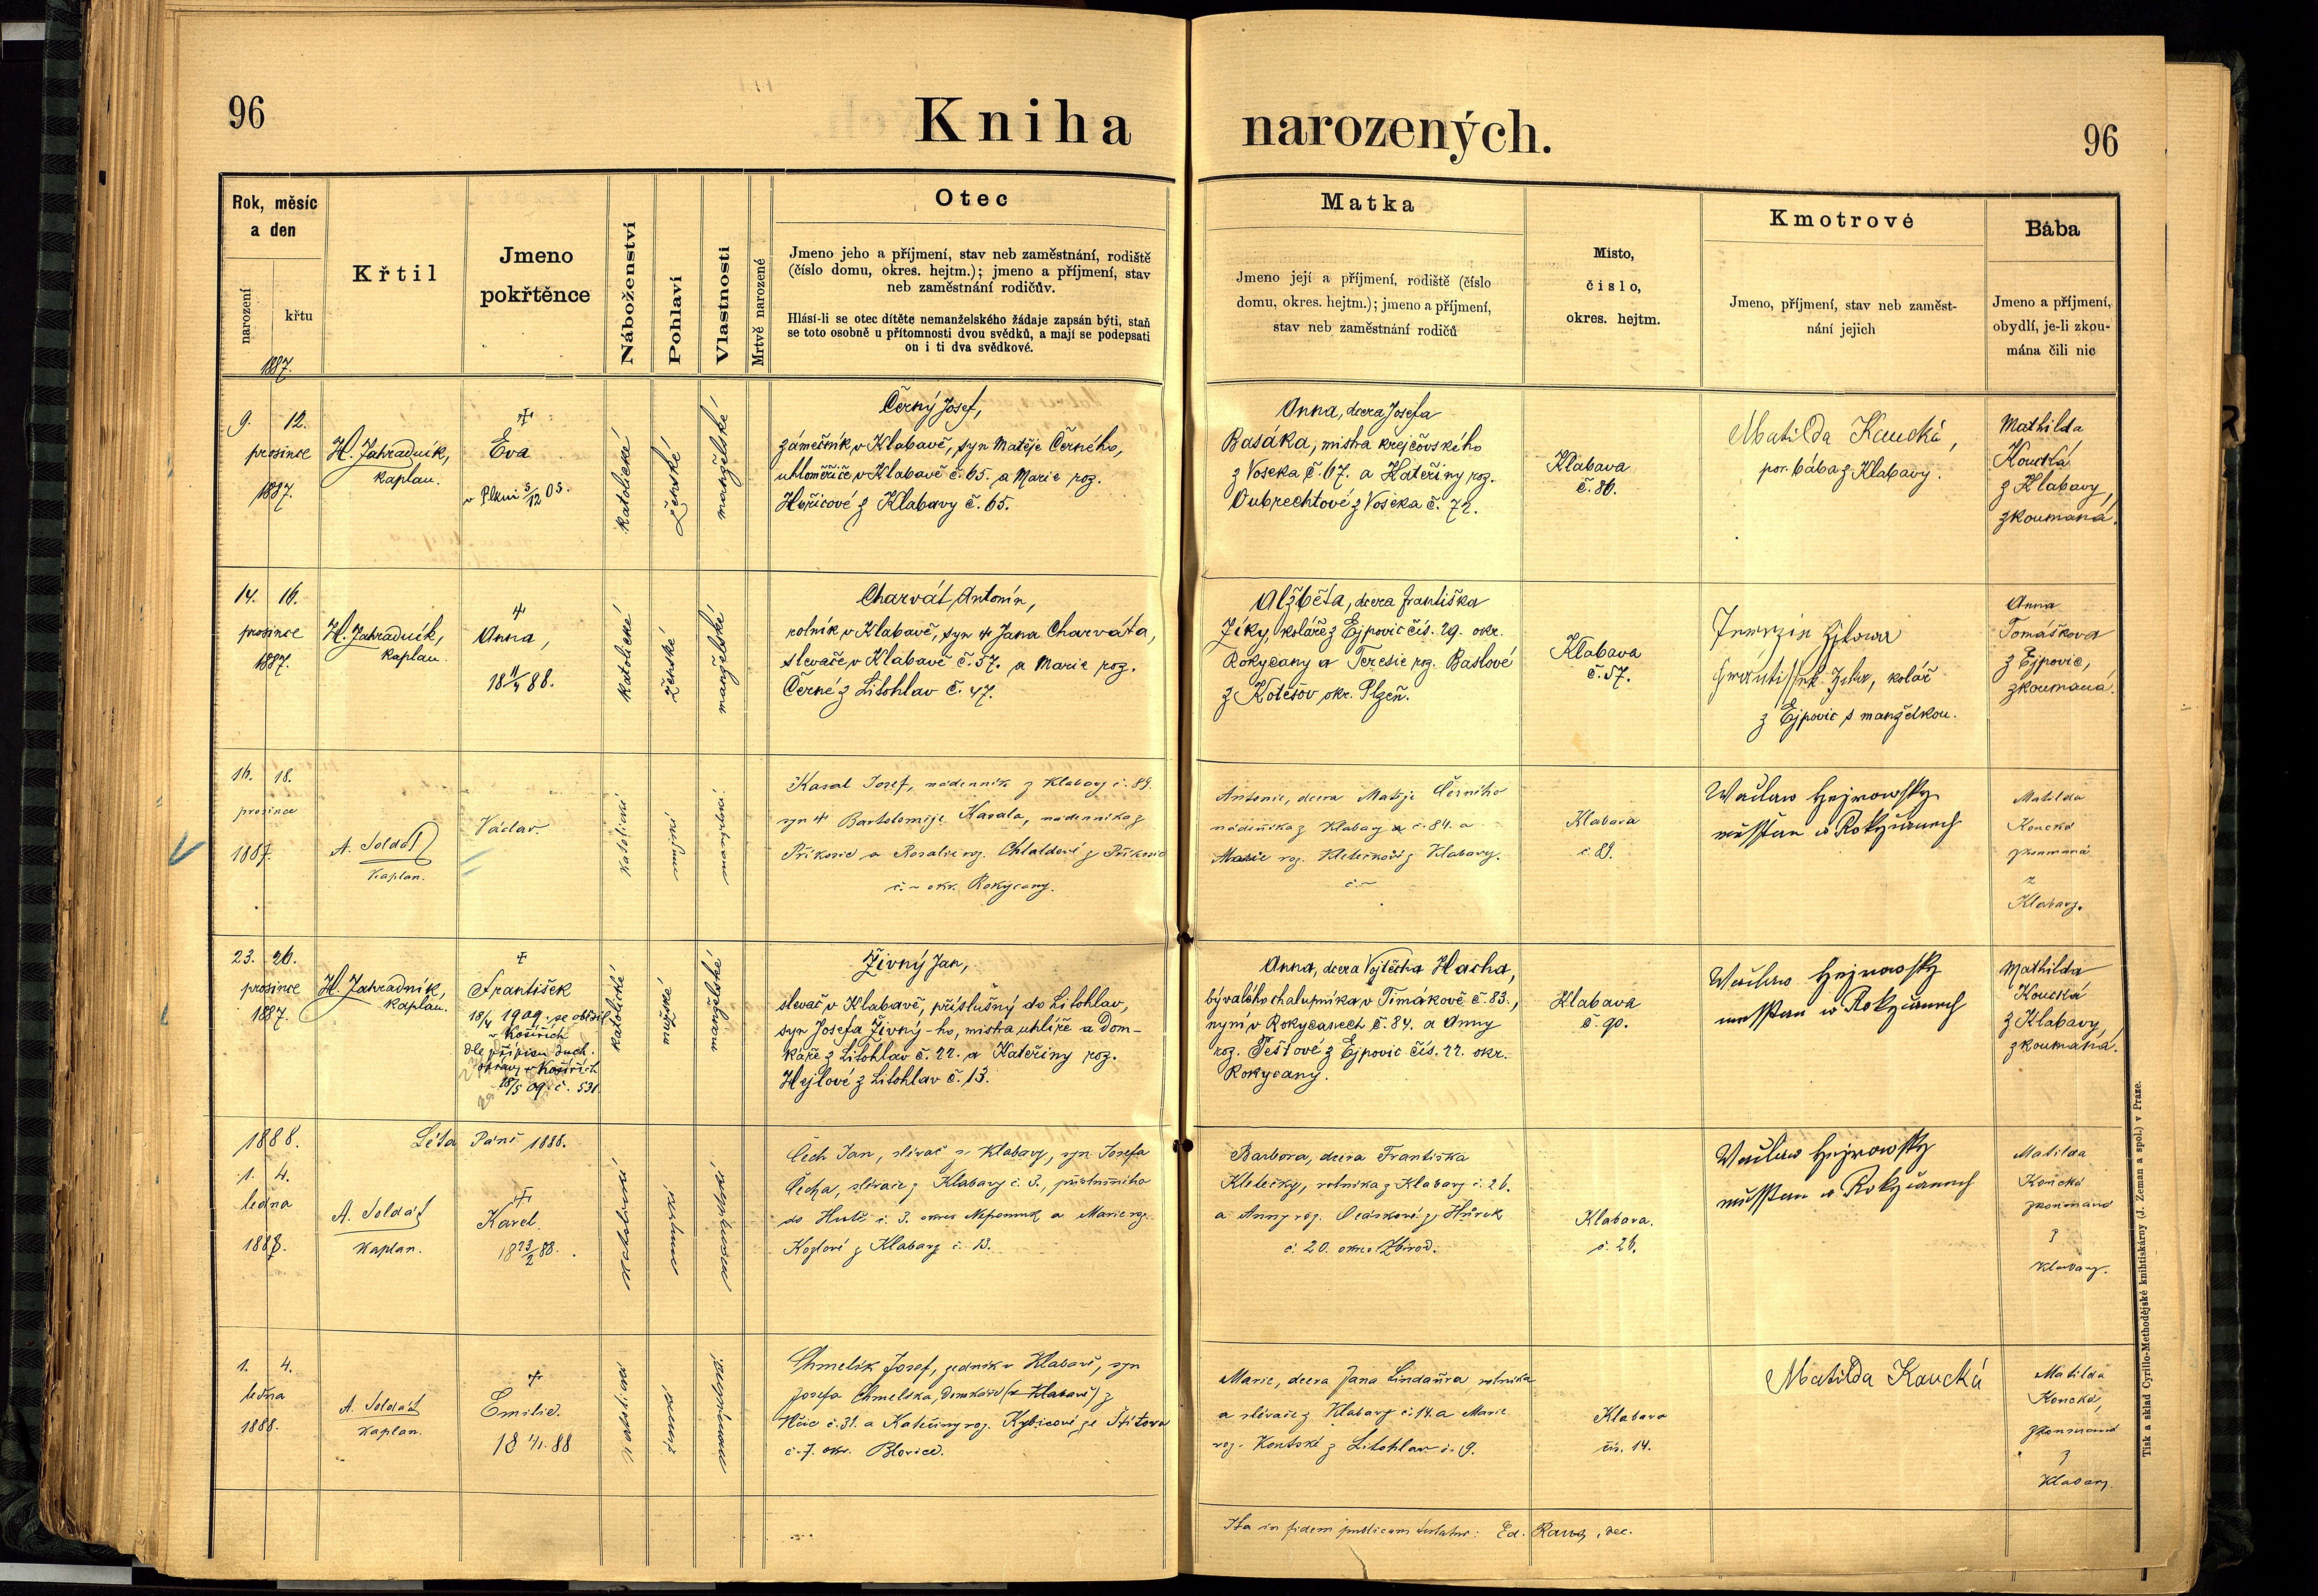 96
Kniha narozených.
96
Rok, měsíc
a den
narození
křtu
1887.
Křtil
Jmeno
pokřtěnce
Náboženství
Pohlaví
Vlastnosti
Mrtvě narozené
Otec
Jmeno jeho a příjmení, stav neb zaměstnání, rodiště
(číslo domu, okres. hejtm.); jmeno a příjmení, stav
neb zaměstnání rodičův.
Hlásí-li se otec dítěte nemanželského žádaje zapsán býti, staň
se toto osobně u přítomnosti dvou svědků, a mají se podepsati
on i ti dva svědkové.
Matka
Jmeno její a příjmení, rodiště (číslo
domu, okres. hejtm.); jmeno a příjmení,
stav neb zaměstnání rodičů
Místo,
číslo,
okres. hejtm.
Kmotrové
Jmeno, příjmení, stav neb zaměst-
nání jejich
Bába
Jmeno a příjmení,
obydlí, je-li zkou-
mána čili nic
9. 12.
prosince
1887.
H. Zahradník,
kaplan.
Eva
v Plzni 5/12 05.
katolické
ženské
manželské
Černý Josef,
zámečník v Klabavě, syn Matěje Černého,
uhloměřiče v Klabavě č. 65. a Marie roz.
Hořicové z Klabavy č. 65.
Anna, dcera Josefa
Basáka, mistra krejčovského
z Voseka č. 67. a Kateřiny roz.
Oubrechtové z Voseka č. 72.
Klabava
č. 86.
Matilda Koucká,
por. bába z Klabavy.
Mathilda
Koucká
z Klabavy,
zkoumaná.
14. 16.
prosince
1887.
H. Zahradník,
kaplan.
Anna,
18 11/4 88.
katolické
ženské
manželské
Charvát Antonín,
rolník v Klabavě, syn Jana Charváta,
slevače v Klabavě č. 57. a Marie roz.
Černé z Litohlav č. 47.
Alžběta, dcera Františka
Zíky, koláře z Ejpovic čís. 29. okr.
Rokycany a Teresie roz. Baslové
z Kotešov okr. Plzeň.
Klabava
č. 57.
kolář
z Ejpovic s manželkou.
Anna
Tomášková
z Ejpovic,
zkoumaná.
16. 18.
prosince
1887.
A. Soldát
kaplan.
Václav.
katolické
mužské
manželské
Kasal Josef, nádenník z Klabavy č. 89.
syn Bartoloměje Kasala, nádenníka z
Příkosic a Rosalie roz. z Příkosic
č. ~ okr. Rokycany.
Antonie, dcera Matěje Černého
nádeníka z Klabavy č. 84. a
Marie roz. z Klabavy.
č. ~
Klabava
č. 89.
Waclaw Hejrowsky
Matilda
Koucká
zkoumaná
z
Klabavy.
23. 26.
prosince
1887.
H. Zahradník,
kaplan.
František
18/4 1909 se oženil
v Košířích
dle přípisu duch.
správy v Košířích
18/5 09 č. 531.
katolické
mužské
manželské
Živný Jan,
slevač v Klabavě, příslušný do Litohlav,
syn Josefa Živný-ho, mistra uhlíře a Dom-
káře z Litohlav č. 22. a Kateřiny roz.
Hejlové z Litohlav č. 13.
Anna, dcera Vojtěcha Hacha,
bývalého chalupníka v Timákově č. 83.,
nyní v Rokycanech č. 84. a Anny
roz. Pešlové z Ejpovic čís. 22. okr.
Rokycany.
Klabava
č. 90.
Waclaw Hejrowsky
Mathilda
Koucká
z Klabavy,
zkoumaná.
1888.
Léta Páně 1888.
1. 4.
ledna
1888.
A. Soldát
kaplan.
Karel.
18 23/2 88.
katolické
mužské
manželské
Čech Jan, slévač z Klabavy, syn Josefa
Čecha, slévače z Klabavy č. 3., příslušného
do Hutě č. 3. okres Nepomuk a Marie roz.
z Klabavy č. 13.
Barbora, dcera Františka
Kletečky, rolníka z Klabavy č. 26.
a Anny roz. z Hůrek
č. 20. okres Zbirov.
Klabava.
č. 26.
Waclaw Hejrowsky
Matilda
Koucká
zkoumaná
z
Klabavy.
1. 4.
ledna
1888.
A. Soldát
kaplan.
Emilie.
18 4/1. 88
katolické
ženské
manželské
Chmelík Josef, zedník v Klabavě, syn
Josefa Chmelíka, Domkáře (v Klabavě) z
č. 31. a Kateřiny roz. Kybicové ze Štítova
č. 7. okr. Blovice.
Marie, dcera Jana Lindaura, rolníka
a slévače z Klabavy č. 14. a Marie
roz. Koutské z Litohlav č. 9.
Klabava
čís. 14.
Matilda Koucká
Matilda
Koucká,
zkoumaná
z
Klabavy.
Ita in fidem publicam testatur: Ed. Raus, dec.
Tisk a sklad Cyrillo-Methodějské knihtiskárny (J. Zeman a spol.) v Praze.